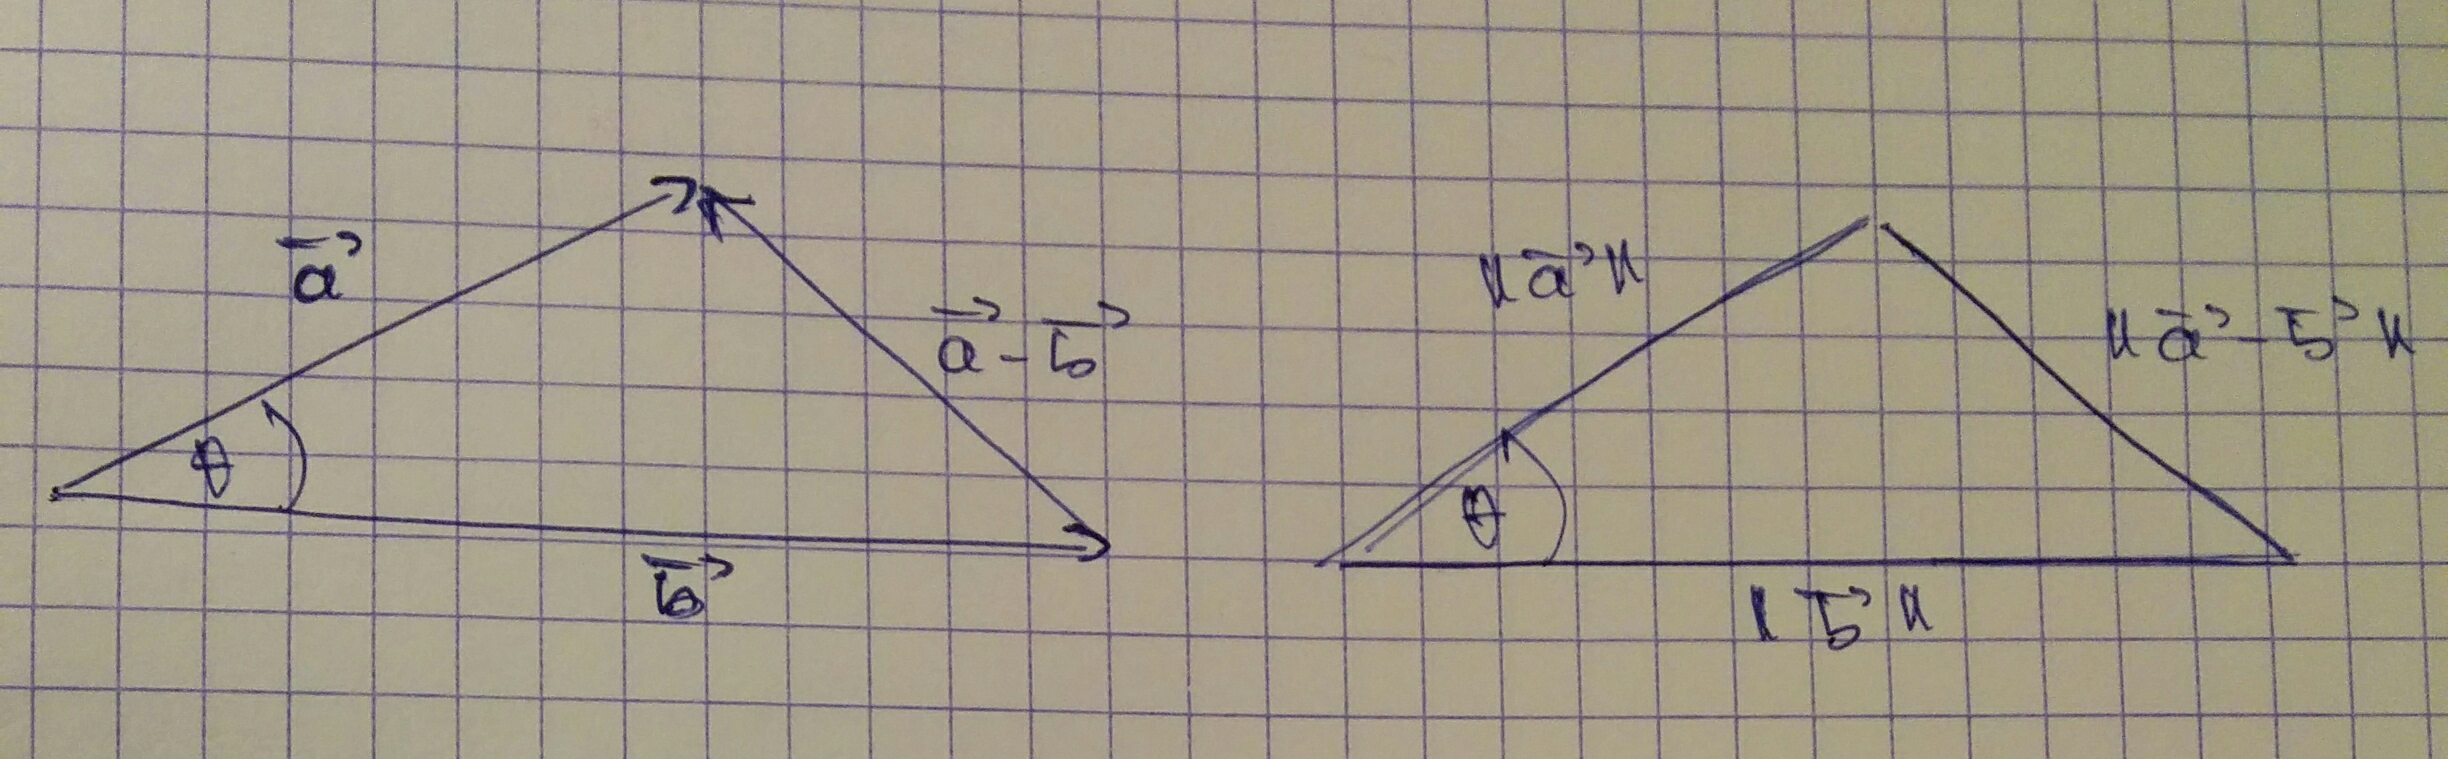 a⃗
θ
a⃗ - b⃗
b⃗
‖a⃗‖
θ
‖a⃗ - b⃗‖
‖b⃗‖